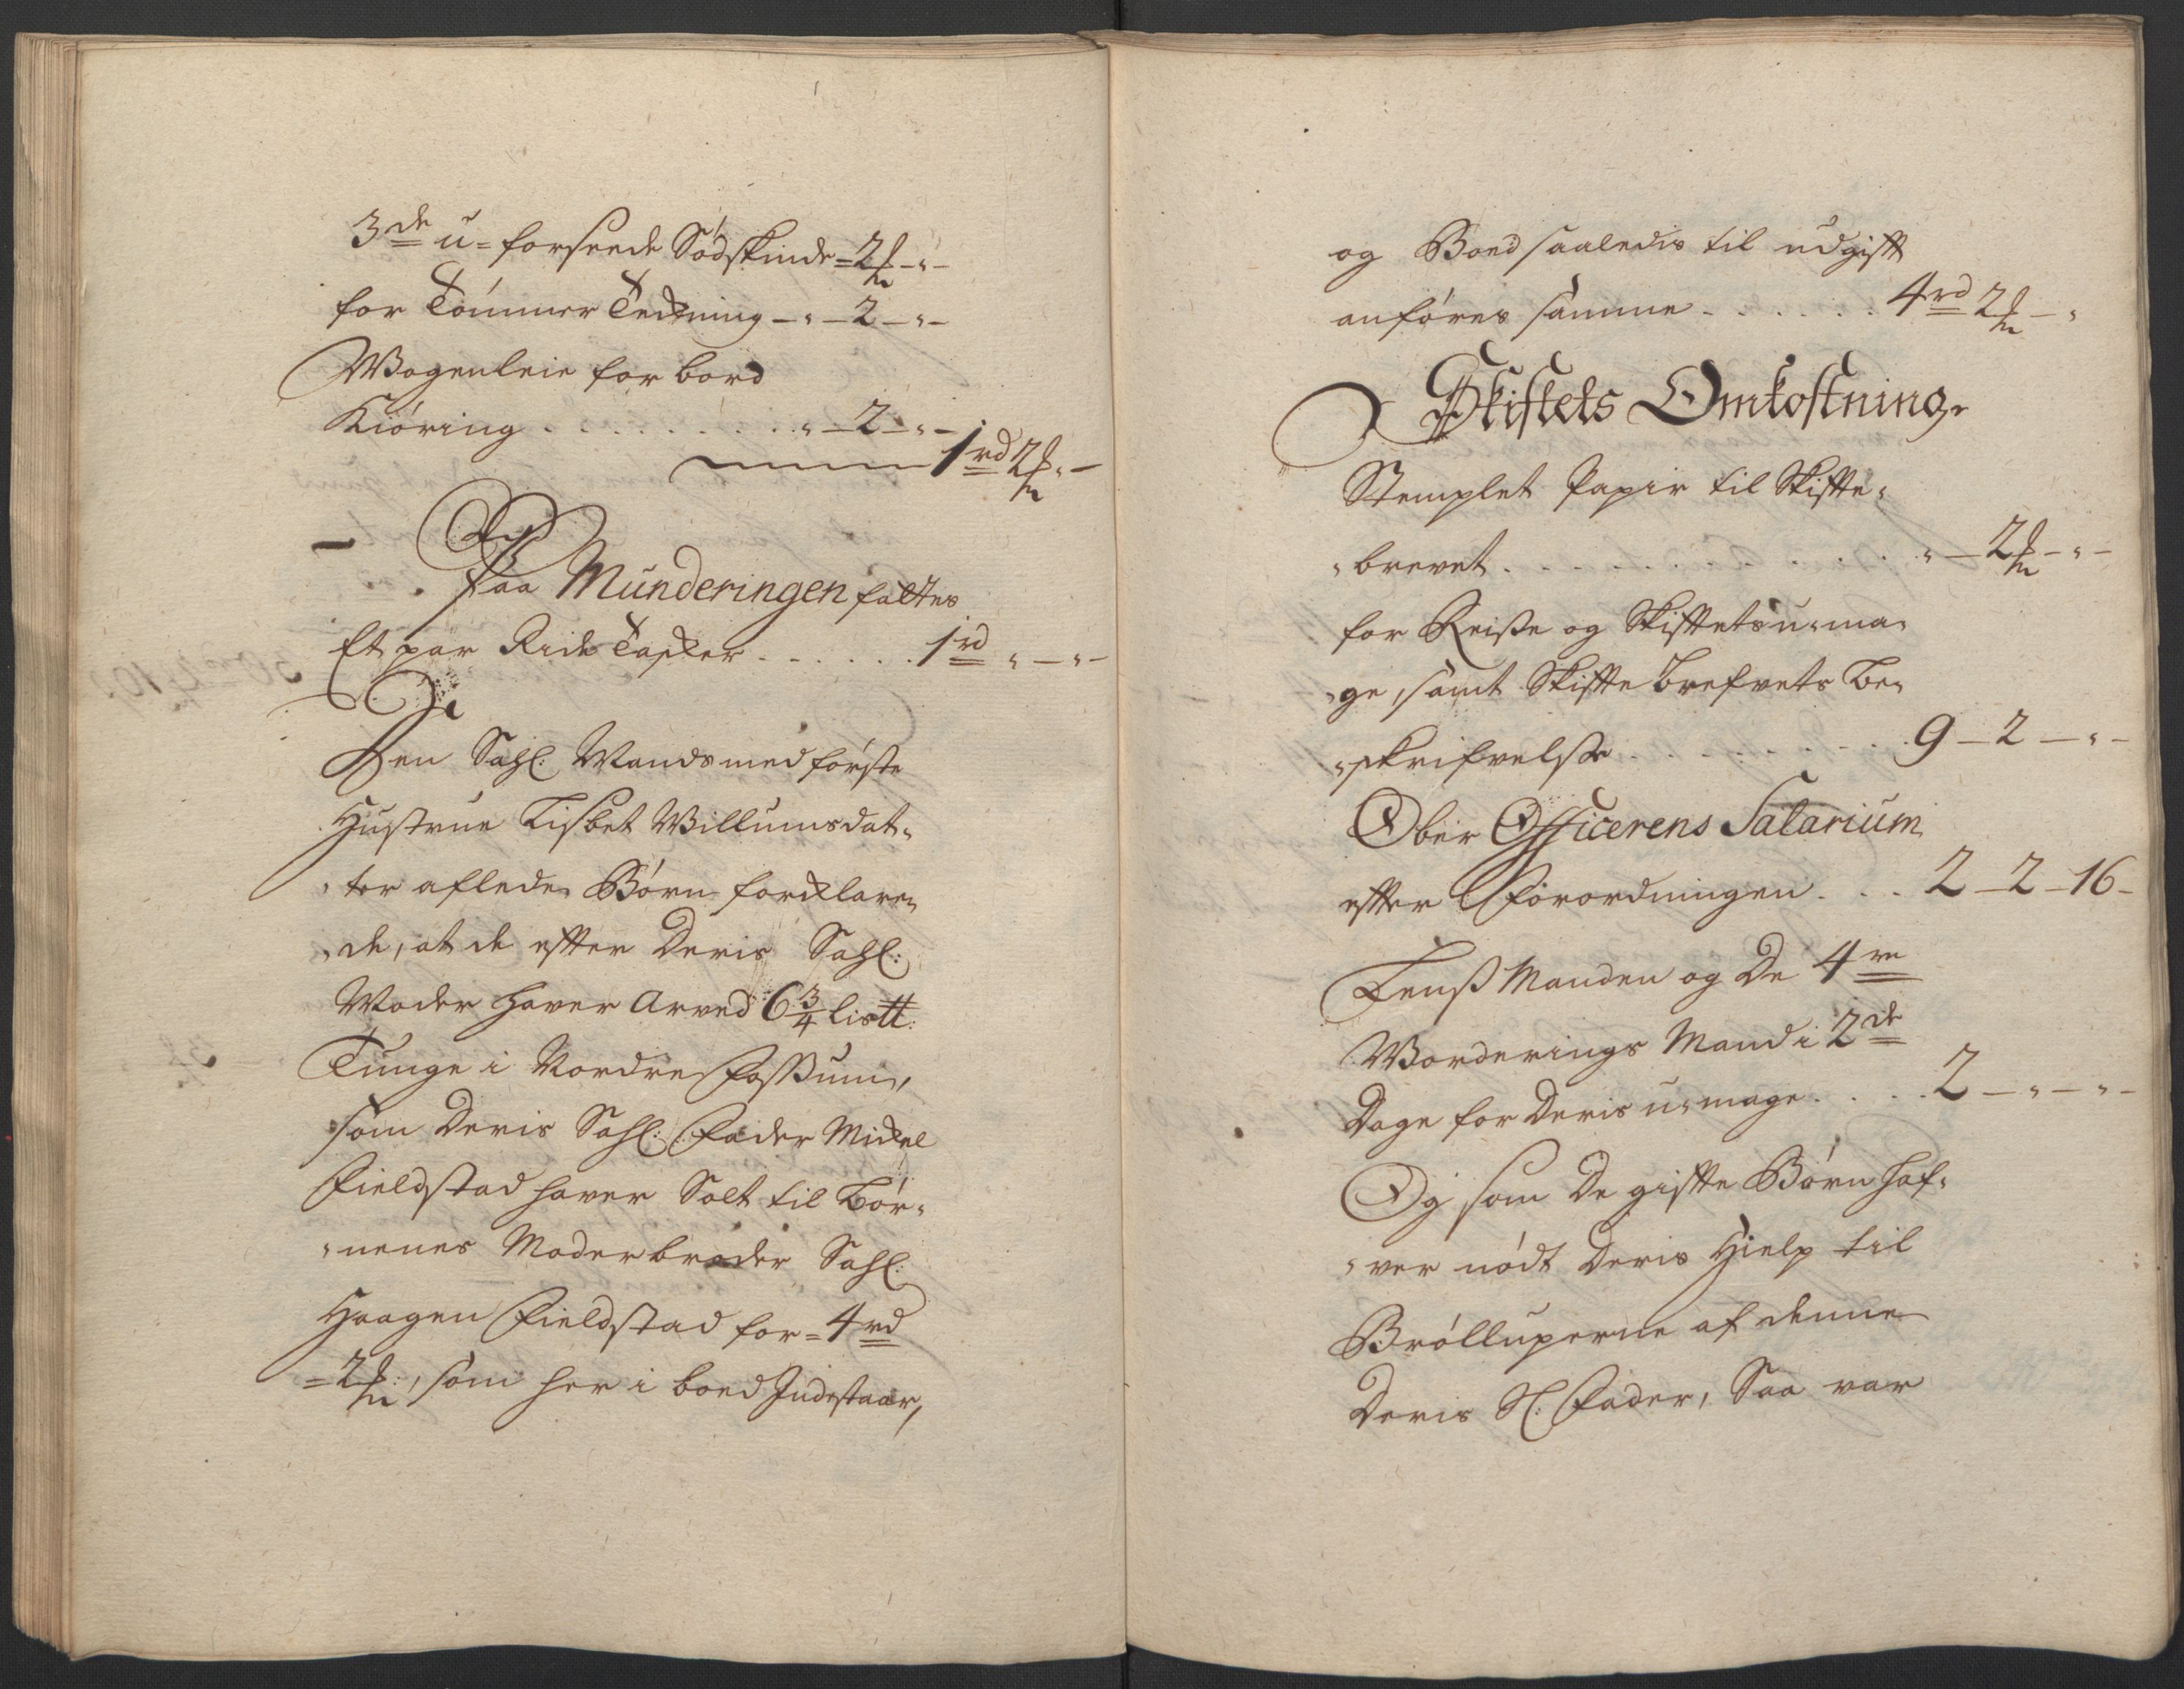 3de u=forseede Sødskinde =2 ß - " -
for Tømmer Teckning - " - 2 - " -
Wogenleie for bord
Kiøring . . . . . . . . " - 2 - " -
1 rd 2 ß " -
Paa Munderingen faltes
Et par Ride Tasker . . . . . . 1 rd " - " -
Den Sahl: Mands med første
Hustrue Lisbet Willumsdat-
-ter aflede Børn forklare-
-de, at de efter Deris Sahl:
Moder haver Arved 6 3/4 lis ℔:
Tunge i Nordre Fossum,
som Deris Sahl: Fader Mickel
Fieldstad haver Solt til Bør-
-nenes Moderbroder Sahl:
Haagen Fieldstad for = 4 rd
= 2 ß:, som her i boed Indestaar,
og Boed saaledis til udgift
anføres samme . . . . . . 4 rd 2 ß - "
Skiftets Omkostning.
Stemplet Papir til Skifte-
-brevet . . . . . . . . . " - 2 ß - " -
for Reise og Skiftets u-ma-
-ge, samt Skifte brefvets Be-
-skrifvelse . . . . . . . . 9 - 2 - " -
Ober Officerens Salarium
efter Forordningen . . . 2 - 2 - 16 -
Lenß Manden og De 4re
Worderings Mænd i 2de
Dage for Deris u-mage . . . . 2 - " - " -
Og som De gifte Børn haf-
-ver nødt Deris Hielp til
Brølluperne af denne
Deris Sl: Fader, Saa var